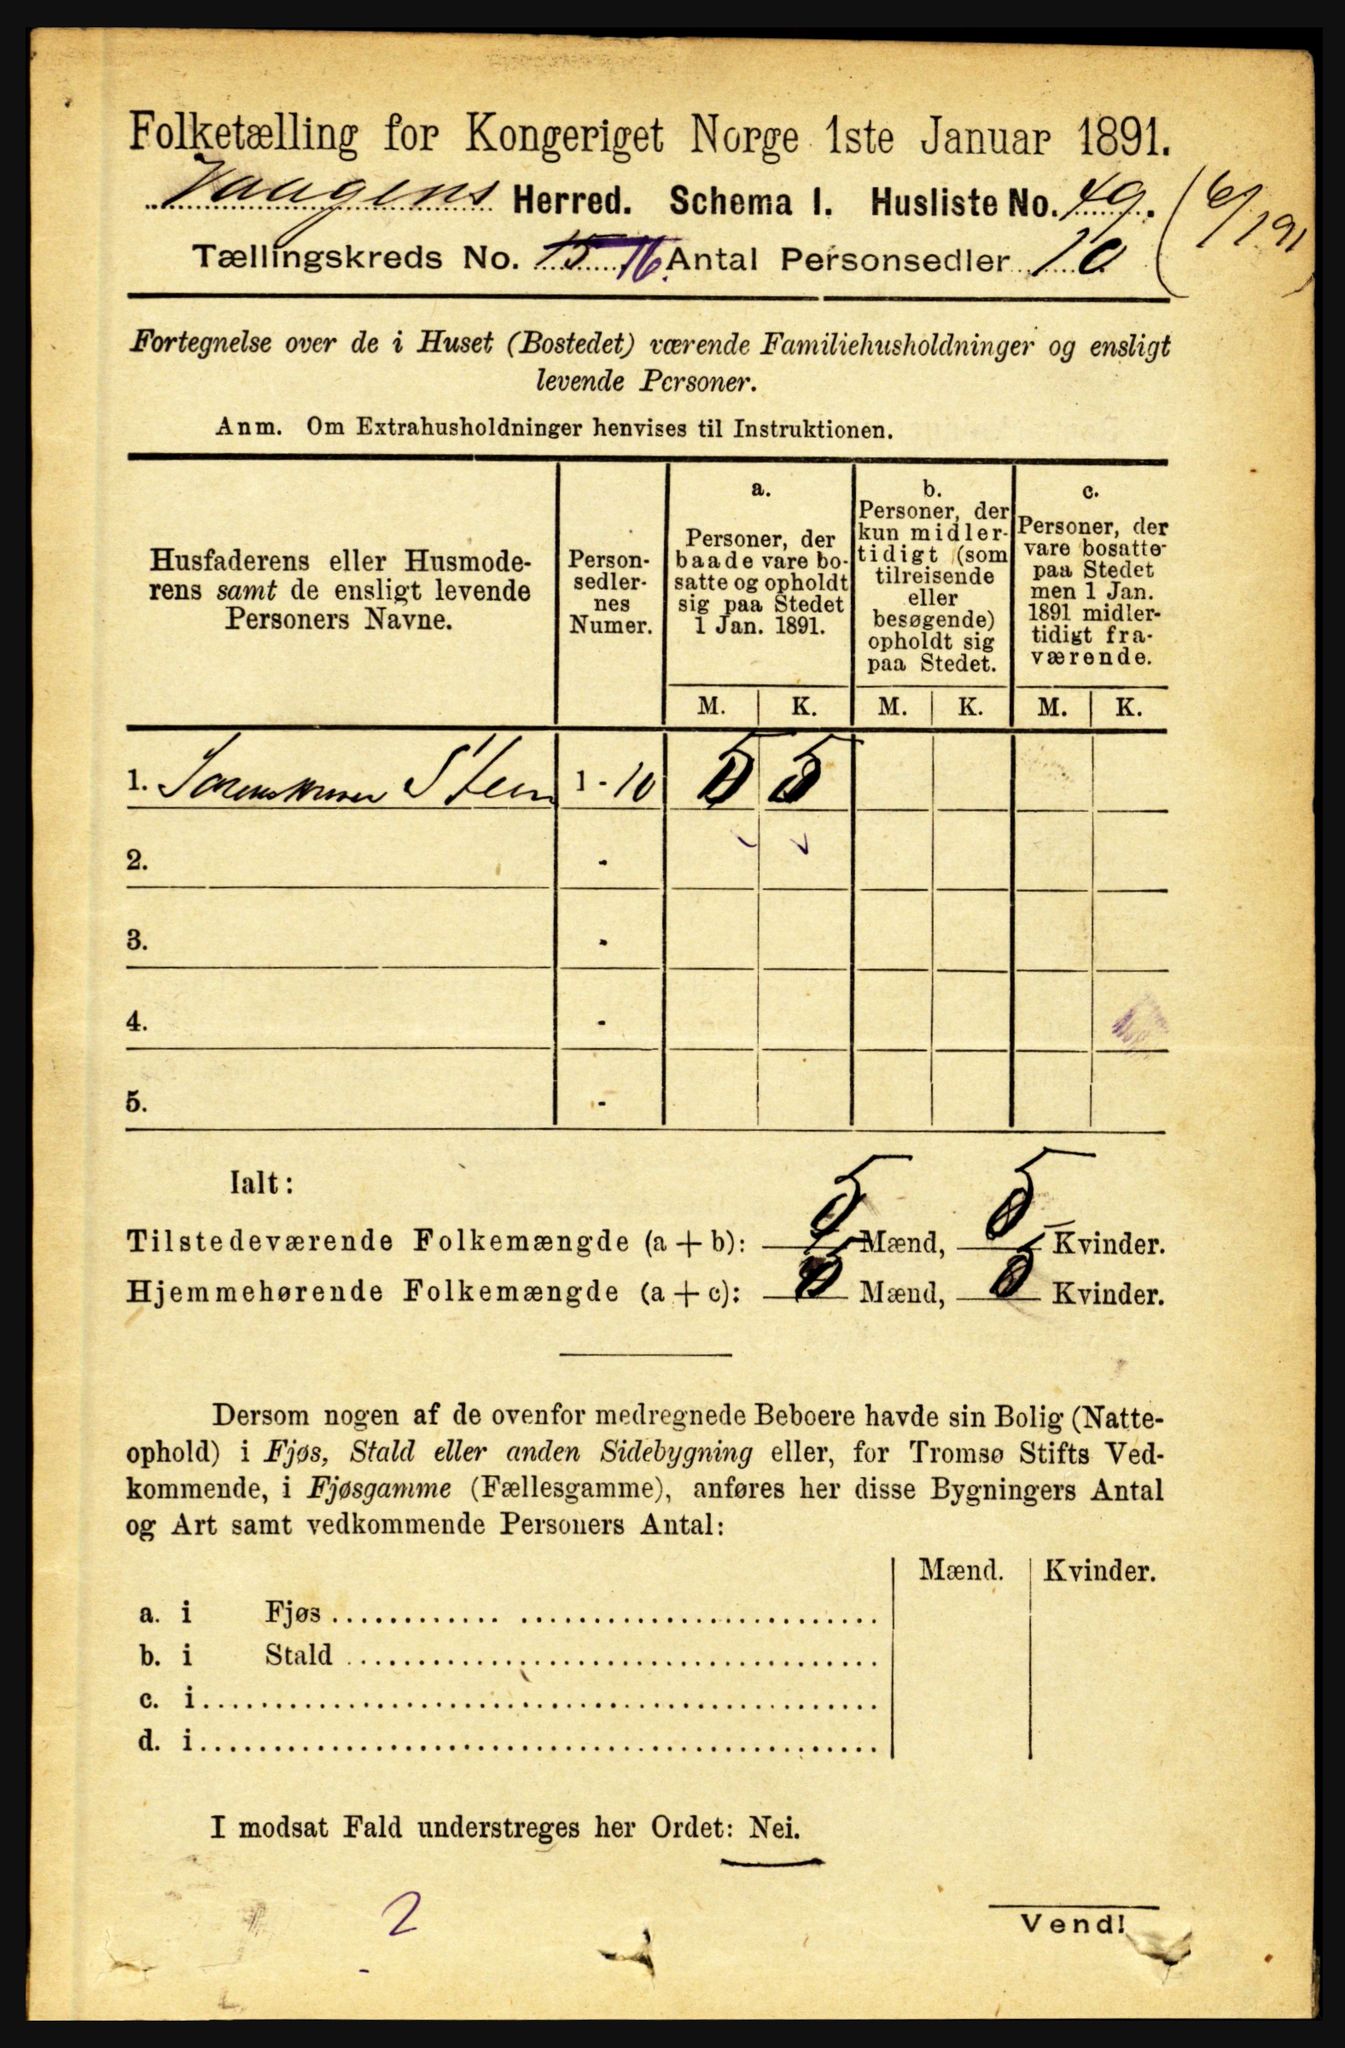 Folketælling for Kongeriget Norge 1ste Januar 1891.
Vaagens Herred. Schema I. Husliste No. 49.
(6/1 91)
Tællingskreds No. 15 16. Antal Personsedler 10
Fortegnelse over de i Huset (Bostedet) værende Familiehusholdninger og ensligt
levende Personer.
Anm. Om Extrahusholdninger henvises til Instruktionen.
Husfaderens eller Husmode-
rens samt de ensligt levende
Personers Navne.
Person-
sedler-
nes
Numer.
a.
Personer, der
baade vare bo-
satte og opholdt
sig paa Stedet
1 Jan. 1891.
b.
Personer, der
kun midler-
tidigt (som
tilreisende
eller
besøgende)
opholdt sig
paa Stedet.
c.
Personer, der
vare bosatte
paa Stedet
men 1 Jan.
1891 midler-
tidigt fra-
værende.
M. K. M. K. M. K.
1. Sorenskriver Stein 1 - 10 5 5
2. -
3. -
4. -
5. -
Ialt:
Tilstedeværende Folkemængde (a + b): 5 Mænd, 5 Kvinder.
Hjemmehørende Folkemængde (a + c): 5 Mænd, 5 Kvinder.
Dersom nogen af de ovenfor medregnede Beboere havde sin Bolig (Natte-
ophold) i Fjøs, Stald eller anden Sidebygning eller, for Tromsø Stifts Ved-
kommende, i Fjøsgamme (Fællesgamme), anføres her disse Bygningers Antal
og Art samt vedkommende Personers Antal:
Mænd. Kvinder.
a. i Fjøs
b. i Stald
c. i
d. i
I modsat Fald understreges her Ordet: Nei.
2
Vend!